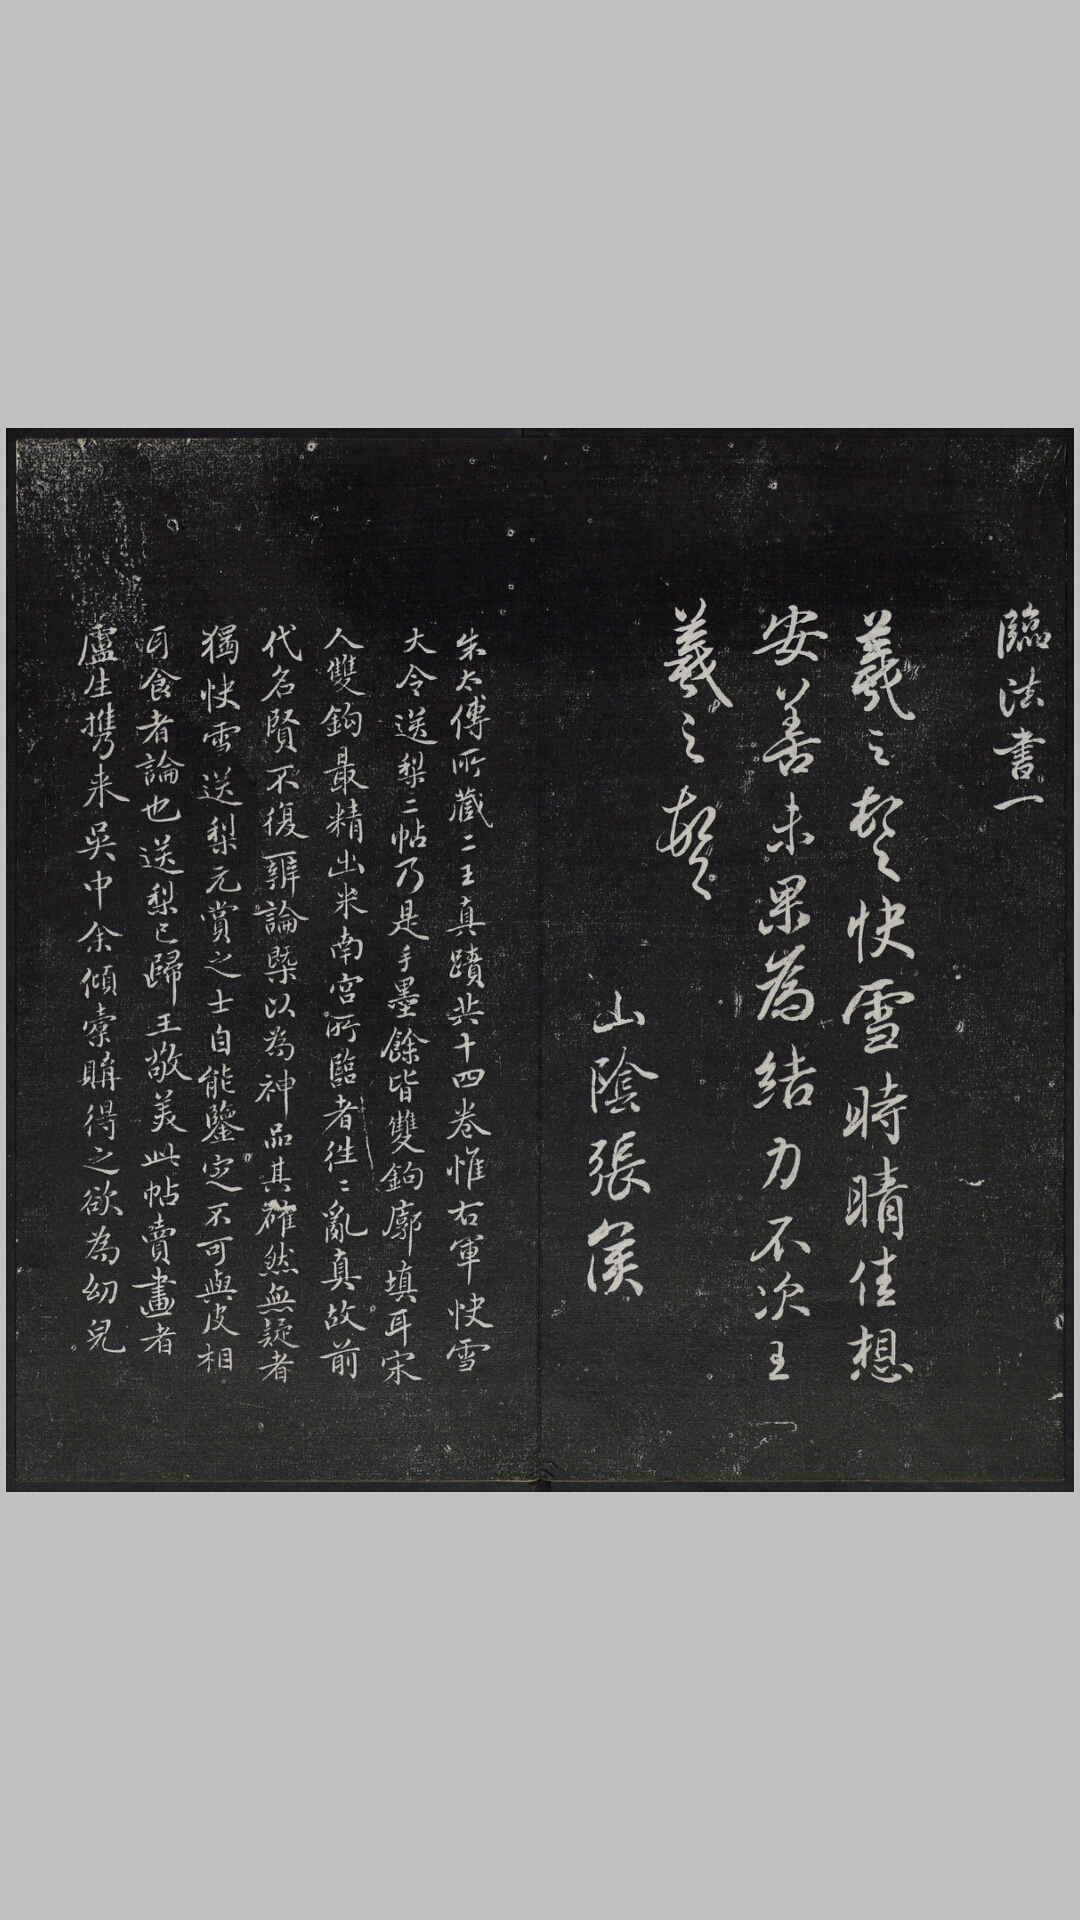 臨法書一
羲之頓首快雪時晴佳想
安善未果為結力不次王
羲之頓首
山陰張侯
朱太傅所藏二王真蹟共十四卷惟右軍快雪
大令送梨二帖乃是手墨餘皆雙鉤廓填耳宋
人雙鉤最精出米南宮所臨者往往亂真故前
代名賢不復辨論槩以為神品其確然無疑者
獨快雪送梨元賞之士自能鑒定不可與皮相
耳食者論也送梨已歸王敬美此帖賣畫者
盧生攜来吳中余傾橐購得之欲為幼兒